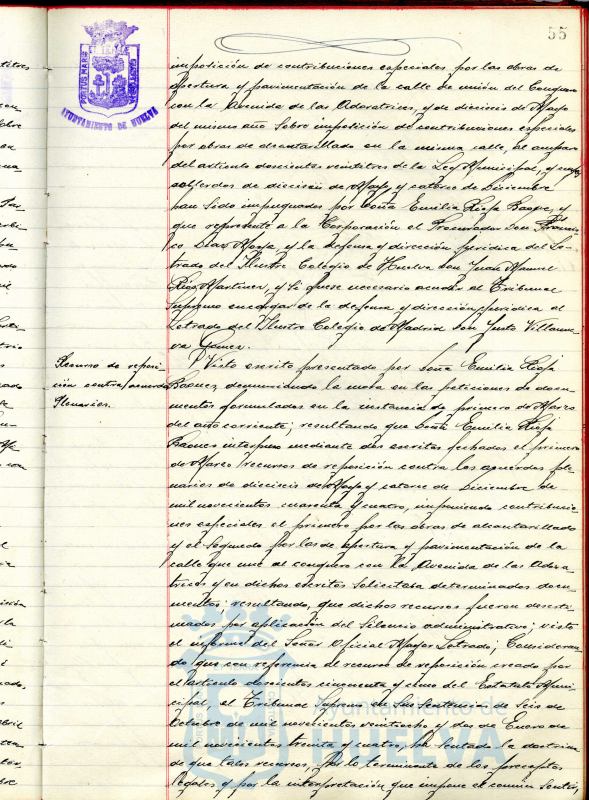 55
PORTUS MARIS
AYUNTAMIENTO DE HUELVA
imposición de contribuciones especiales por las obras de
apertura y pavimentación de la calle de unión del Conquero
con la Avenida de las Adoratrices, y de dieciseis de Mayo
del mismo año sobre imposición de contribuciones especiales
por obras de alcantarillado en la misma calle, al amparo
del artículo doscientos veintitres de la Ley Municipal, y cuyos
acuerdos de dieciseis de Mayo y catorce de Diciembre
han sido impugnados por Doña Emilia Rioja Baquez, y
que represente a la Corporación el Procurador Don
Diaz y la defensa y dirección jurídica del Le-
trado del Ilustre Colegio de Huelva Don Juan Manuel
Rios Martinez, y si fuese necesario acudir al Tribunal
Supremo encargar de la defensa y dirección jurídica al
Letrado del Ilustre Colegio de Madrid Don Justo Villanue-
va Gomez.
Recurso de reposi-
ción contra acuerdos
Plenarios.
Visto escrito presentado por Doña Emilia Rioja
denunciando la mora en las peticiones de docu-
mentos formuladas en la instancia de primero de Marzo
del año corriente; resultando que Doña Emilia Rioja
interpuso mediante dos escritos fechados el primero
de Marzo recursos de reposición contra los acuerdos ple-
narios de dieciseis de Mayo y catorce de Diciembre de
mil novecientos cuarenta y cuatro, imponiendo contribucio-
nes especiales el primero por las obras de alcantarillado
y el segundo por las de apertura y pavimentación de la
calle que une al conquero con la Avenida de las Adora-
trices y en dichos escritos solicitaba determinados docu-
mentos; resultando, que dichos recursos fueron desesti-
mados por aplicación del silencio administrativo; visto
el informe del Señor Oficial Mayor Letrado; Consideran-
do que con referencia al recurso de reposición creado por
el artículo doscientos cincuenta y cinco del Estatuto Muni-
cipal, el Tribunal Supremo en sus sentencias de seis de
Octubre de mil novecientos veintiocho y dos de Enero de
mil novecientos treinta y cuatro, ha sentado la doctrina
de que tales recursos, por lo terminante de los preceptos
legales y por la interpretación que impone el común sentir,
Ayuntamiento de
HUELVA